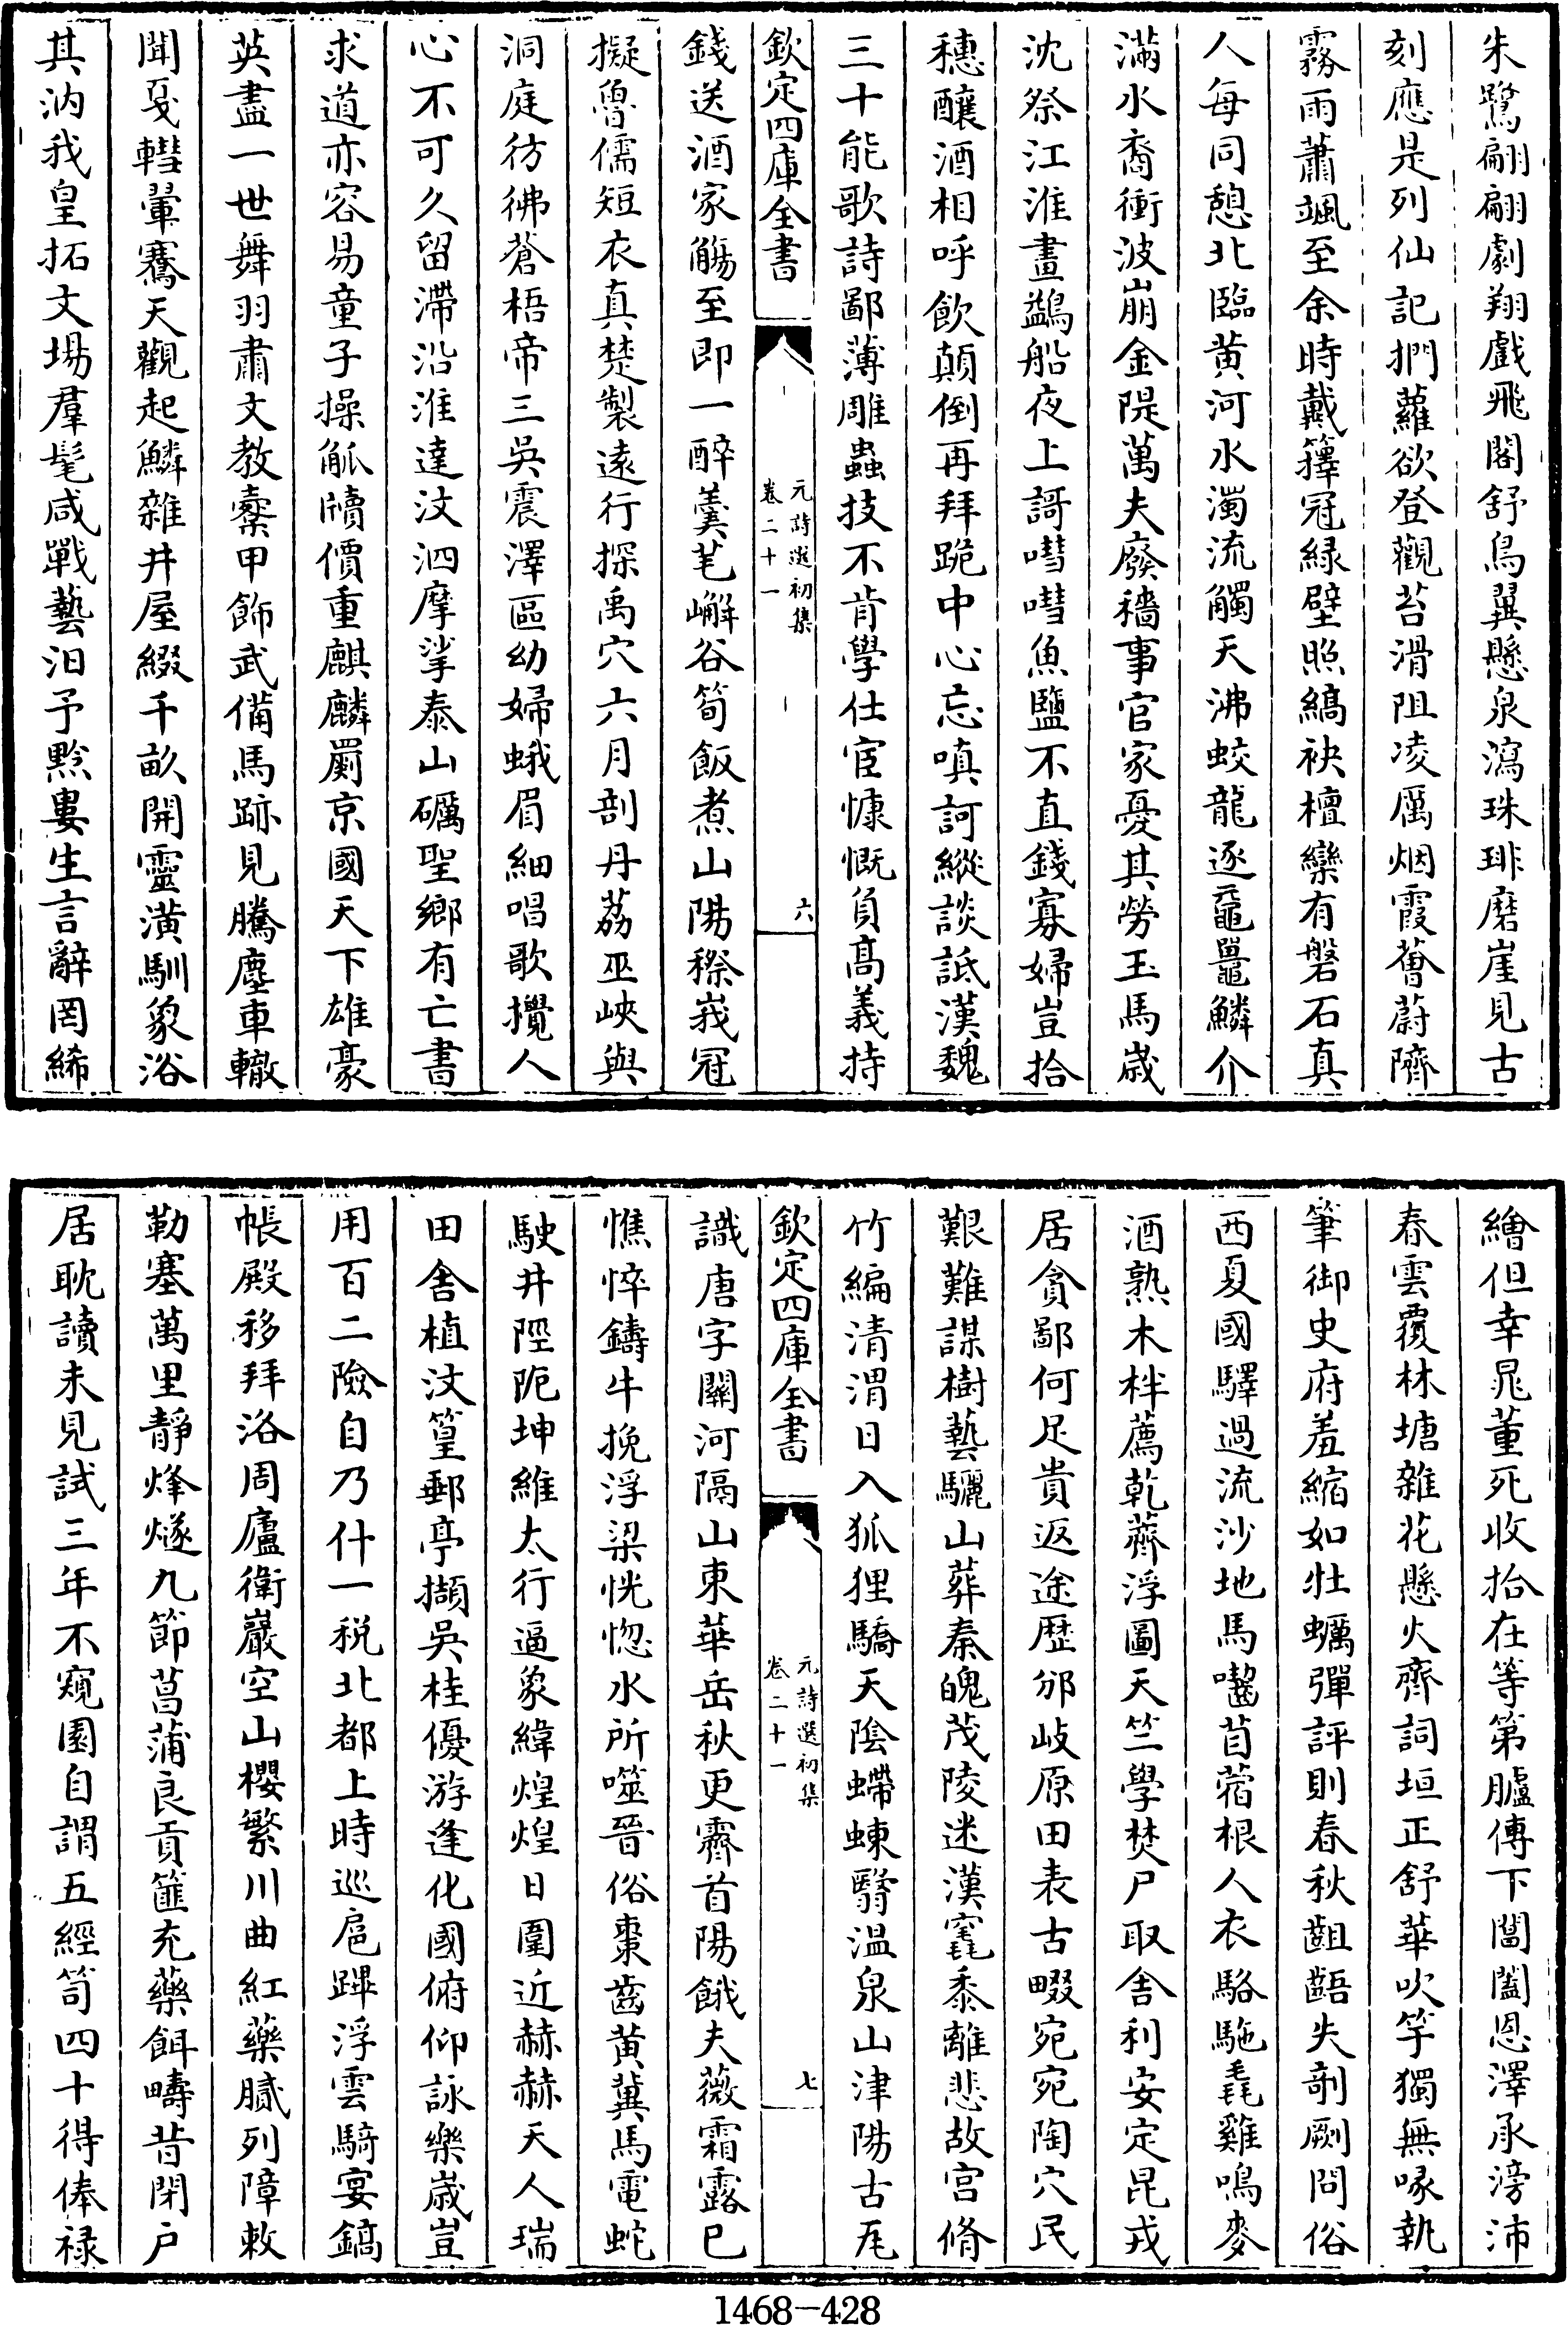 朱鷺翩翩劇翔戲飛閣舒鳥翼懸泉瀉珠琲磨崖見古
刻應是列仙記捫蘿欲登觀苔滑阻凌厲烟霞薈蔚隮
霧雨蕭颯至余時戴籜冠緑壁照縞袂檀欒有磐石真
人每同憩北臨黄河水濁流觸天沸蛟龍逐黿鼉鱗介
滿水裔衝波崩金隄萬夫廢穡事官家憂其勞玉馬歳
沈祭江淮畫鷁船夜上謌嘒嘒魚鹽不直錢寡婦豈拾
穗釀酒相呼飲顛倒再拜跪中心忘嗔訶縱談詆漢魏
三十能歌詩鄙薄雕蟲技不肯學仕宦慷慨負高義持
欽定四庫全書
元詩選初集
卷二十一
六
錢送酒家觴至即一醉羮芼嶰谷筍飯煮山陽穄峩冠
擬魯儒短衣真楚製遠行探禹穴六月剖丹荔巫峽與
洞庭彷彿蒼梧帝三吳震澤區幼婦蛾眉細唱歌攪人
心不可久留滯沿淮達汶泗摩挲泰山礪聖鄉有亡書
求道亦容易童子操觚牘價重麒麟罽京國天下雄豪
英盡一世舞羽肅文教櫜甲飾武備馬跡見騰塵車轍
聞戛轊翬鶱天觀起鱗雜井屋綴千畝開靈潢馴象浴
其汭我皇拓文場羣髦咸戰藝汩予黥婁生言辭罔絺
繪但幸晁董死收抬在等第臚傳下閶闔恩澤承滂沛
春雲覆林塘雜花懸火齊詞垣正舒華吹竽獨無喙執
筆御史府羞縮如牡蠣彈評則春秋齟齬失剞劂問俗
西夏國驛過流沙地馬囓苜蓿根人衣駱駞毳雞鳴麥
酒熟木柈薦乾薺浮圖天竺學焚尸取舍利安定昆戎
居貪鄙何足貴返途歴邠岐原田表古畷宛宛陶穴民
艱難謀樹藝驪山葬秦魄茂陵迷漢竁黍離悲故宫脩
竹編清渭日入狐狸驕天陰螮蝀翳温泉山津陽古瓦
欽定四庫全書
元詩選初集
卷二十一
七
識唐字關河隔山東華岳秋更霽首陽餓夫薇霜露已
憔悴鑄牛挽浮梁恍惚水所噬晉俗棗齒黄冀馬電蛇
駛井陘阨坤維太行逼象緯煌煌日圍近赫赫天人瑞
田舍植汶篁郵亭擷吳桂優游逢化國俯仰詠樂歳豈
用百二險自乃什一税北都上時巡扈蹕浮雲騎宴鎬
帳殿移拜洛周廬衛巖空山櫻繁川曲紅藥膩列障敕
勒塞萬里靜烽燧九節菖蒲良貢篚充藥餌疇昔閉户
居耽讀未見試三年不窺園自謂五經笥四十得俸禄
1468-428